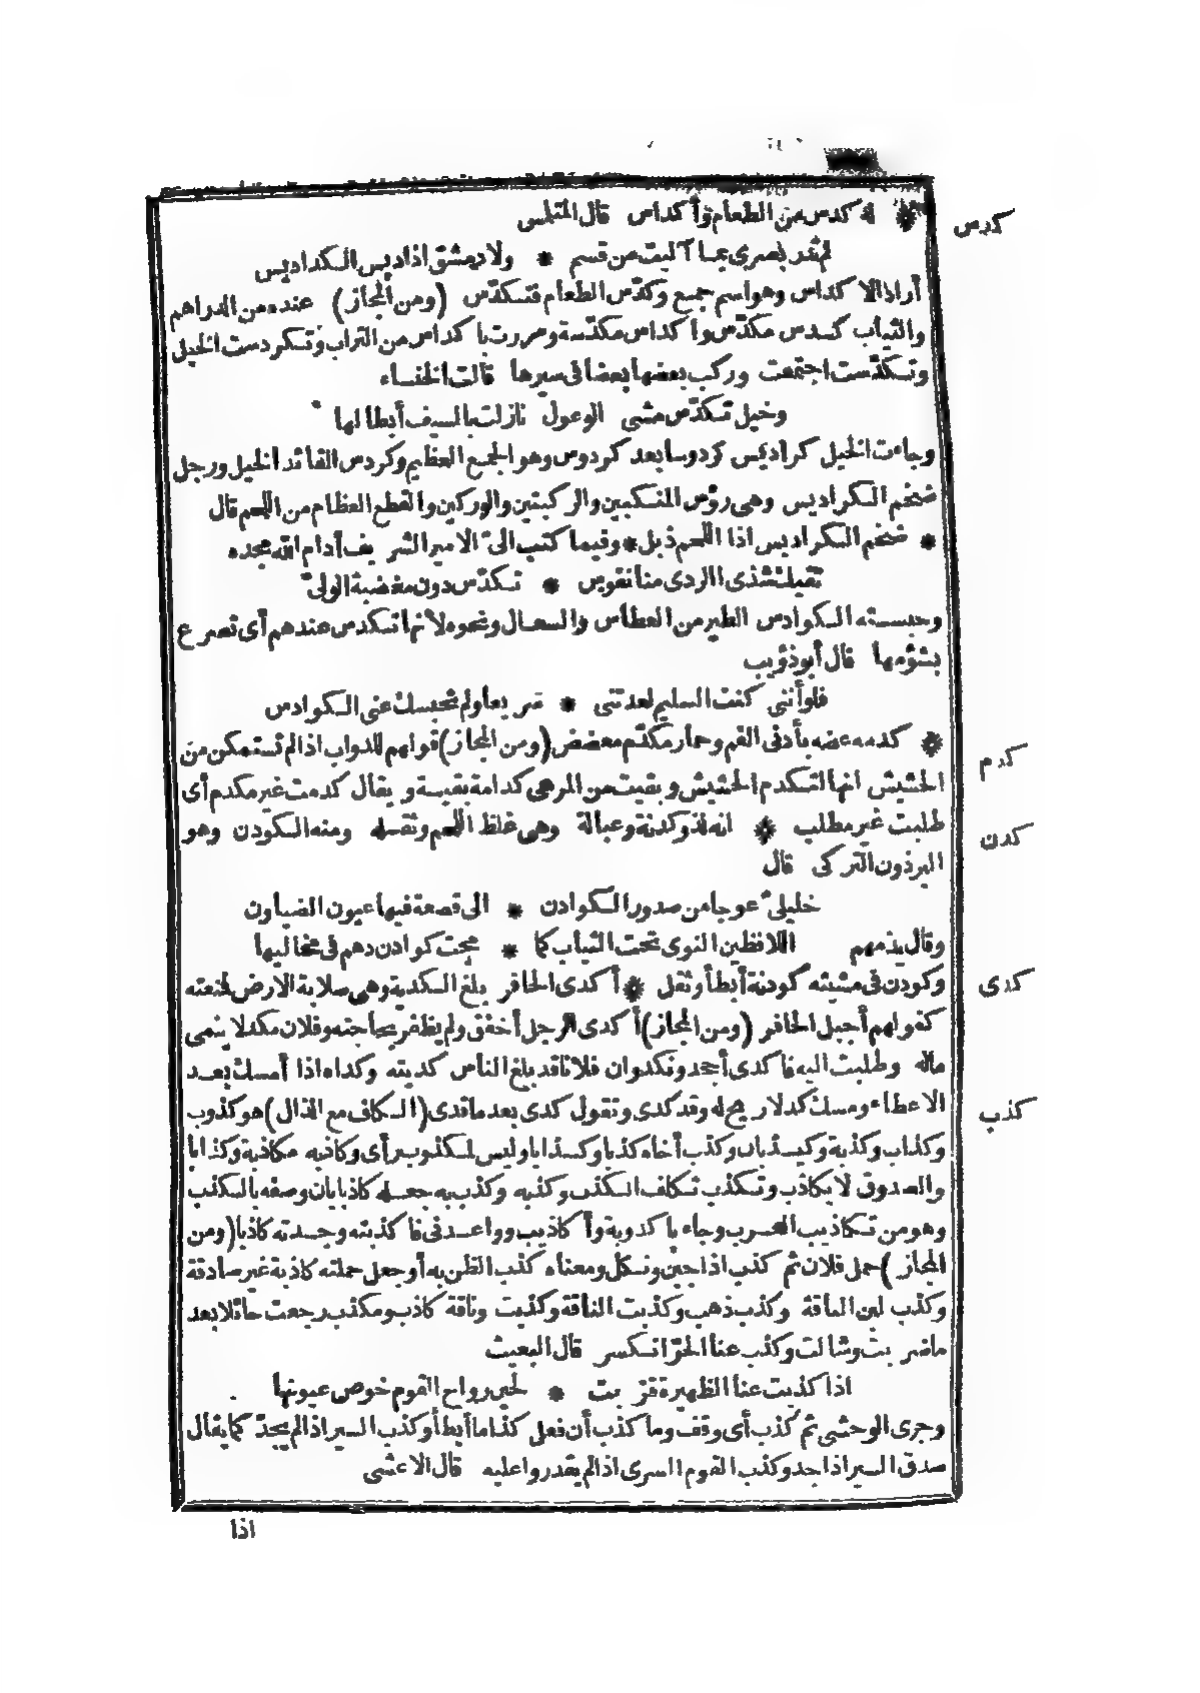 كدس
* له كدس من الطعام وأكداس قال المتلمس
لم تدر بصرى بما آليت من قسم * ولا دمشق اذا ديس الكداديس
أراد الاكداس وهو اسم جمع وكدّس الطعام فتكدّس (ومن المجاز) عنده من الدراهم
والثياب كدس مكدّس وأكداس مكدّسة ومررت باكداس من التراب وتكردست الخيل
وتكدّست اجتمعت وركب بعضها بعضا فى سيرها قالت الخنساء
وخيل تكدّس مشى الوعول نازلت بالسيف أبطالها
وجاءت الخيل كراديس كردوسا بعد كردوس وهو الجمع العظيم وكردس القائد الخيل ورجل
ضخم الكراديس وهى رؤس المنكبين والركبتين والوركين والقطع العظام من اللحم قال
* ضخم الكراديس اذا اللحم ذبل * وفيما كتب الىّ الامير الشريف أدام الله مجده
تقيك شذى الردى منا نفوس * تكدّس دون مغضبة الولىّ
وحبسته الكوادس الطير من العطاس والسعال ونحوه لأنها تكدس عندهم أى تصرع
بشؤمها قال أبو ذؤيب
فلو أننى كنت السليم لعدتنى * سريعا ولم تحبسك عنى الكوادس
كدم
* كدمه عضه بأدنى الفم وحمار مكدّم معضض (ومن المجاز) قولهم للدواب اذا لم تستمكن من
الحشيش انها لتكدم الحشيش وبقيت من المرعى كدامة بقيسة ويقال كدمت غير مكدم أى
كدن
طلبت غير مطلب * انه لذو كدنة وعبالة وهى غلظ اللحم وثقله ومنه الكودن وهو
البرذون التركى قال
خليلىّ عوجا من صدور الكوادن * الى قصعة فيها عيون الضياون
وقال يذمهم اللافظين النوى تحت الثياب كما * مجت كوادن دهم فى مخاليها
كدى
وكودن فى مشيته كودنة أبطأ وثقل * أكدى الحافر بلغ الكدية وهى صلابة الارض فمنعته
كقولهم أجبل الحافر (ومن المجاز) أكدى الرجل أخفق ولم يظفر بحاجته وفلان مكد لا ينمى
ماله وطلبت اليه فاكدى أجحد ونكد وان فلانا قد بلغ الناس كديته وكداه اذا أمسك بعد
كذب
الاعطاء ومسك كد لا ريح له وقد كدى وتقول كدى بعد ما قدى (الكاف مع الذال) هو كذوب
وكذاب وكذبة وكيذبان وكذب أخاه كذبا وكذابا وليس لمكذوب رأى وكاذبه مكاذبة وكذابا
والصدوق لا يكاذب وتكذب تكلف الكذب وكذبه وكذب به جعله كاذبا بان وصفه بالكذب
وهو من تكاذيب العرب وجاء باكذوبة وأكاذيب وواعدنى فاكذبته وجدته كاذبا (ومن
المجاز) حمل فلان ثم كذب اذا جبن ونكل ومعناه كذب الظن به أو جعل حملته كاذبة غير صادقة
وكذب لبن الناقة وكذب ذهب وكذبت الناقة وكذبت وناقة كاذب ومكذب رجعت حائلا بعد
ماضربت وشالت وكذب عنا الحرّ انكسر قال البعيث
اذا كذبت عنا الظهيرة قربت * لحين رواح القوم خوص عيونها
وجرى الوحشى ثم كذب أى وقف وما كذب أن فعل كذا ما أبطأ وكذب السير اذا لم يجدّ كما يقال
صدق السير اذا جد وكذب القوم السرى اذا لم يقدروا عليه قال الاعشى
اذا